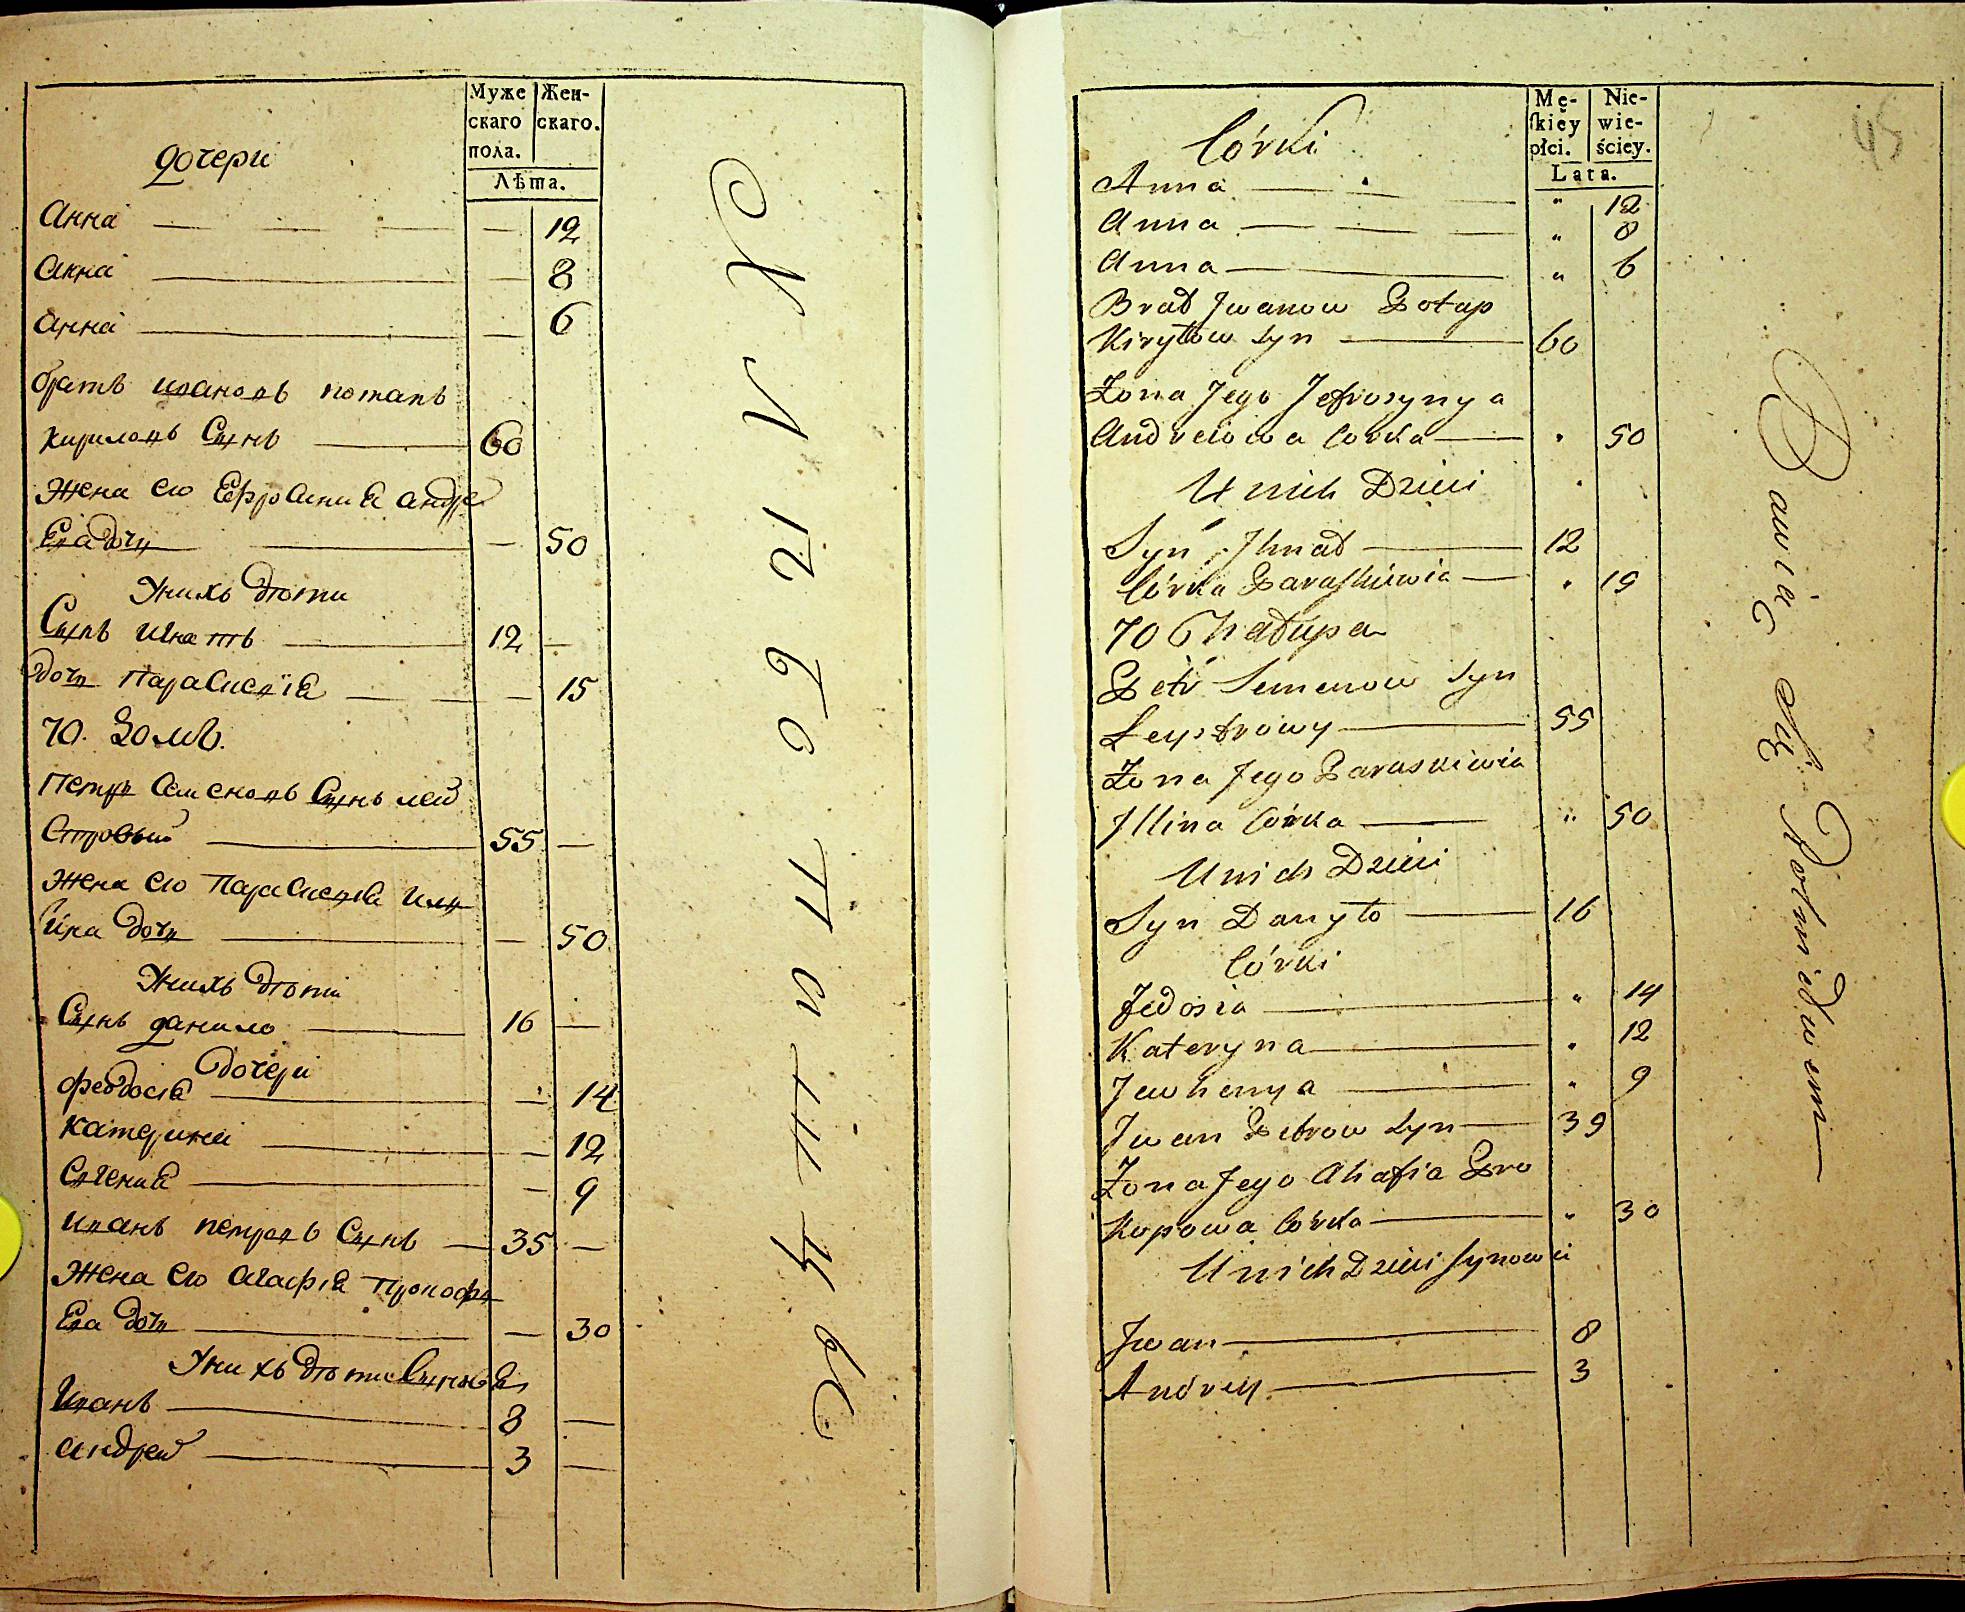 Муже
скаго
пола.
Жен-
скаго.
Лѣта.
дочери
Анна 12
Анна 8
Анна 6
братъ ивановъ потапъ
кириловъ Сынъ 60
Жена его Ефросинiя андре
Ева дочь 50
Унихъ дѣти
Сынъ Игнатъ 12
дочь Парасковiя 15
70. Домъ.
Петръ Семеновъ Сынъ лей
Стровый 55
Жена его Парасковiя Иль
ина дочь 50
Унихъ дѣти
Сынъ данило 16
дочери
феодосiя 14
катерина 12
Евгенiя 9
Иванъ петровъ Сынъ 35
Жена его Агафiя Прокофь
Ева дочь 30
Унихъ дѣти Сыновья
Иванъ 8
андрей 3
Męskiey
płci.
Nie-
wie-
ściey.
Lata.
45
Córki
Anna " 12
Anna " 8
Anna " 6
Brat Jwanow Potap
Kiryłow Syn 60
Żona Jego Jefrosynya
Andreiowa Corka " 50
U nich Dzieci
Syn Jhnat 12
Córka Paraskiewia " 15
70 Chałupa
Petr Semenow Syn
Leystrowy 55
Żona Jego Paraskiewia
Jllina Córka " 50
U nich Dzieci
Syn Danyło 16
Córki
Fedosia " 14
Kateryna " 12
Jewhenya " 9
Jwan Petrow Syn 39
Żona Jego Ahafia Pro
kopowa Córka " 30
U nich Dzieci Synowie
Jwan 8
Andrey 3
Bawią się Rolnictwem